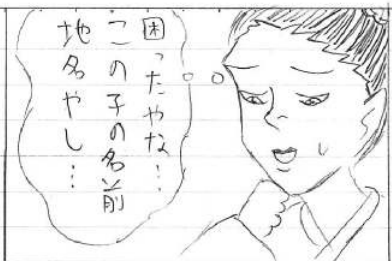 困ったやな…
この子の名前
地名やし…